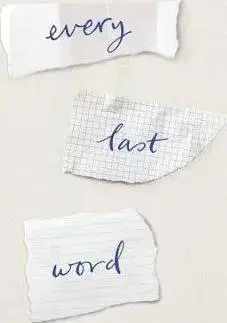 every
last
word